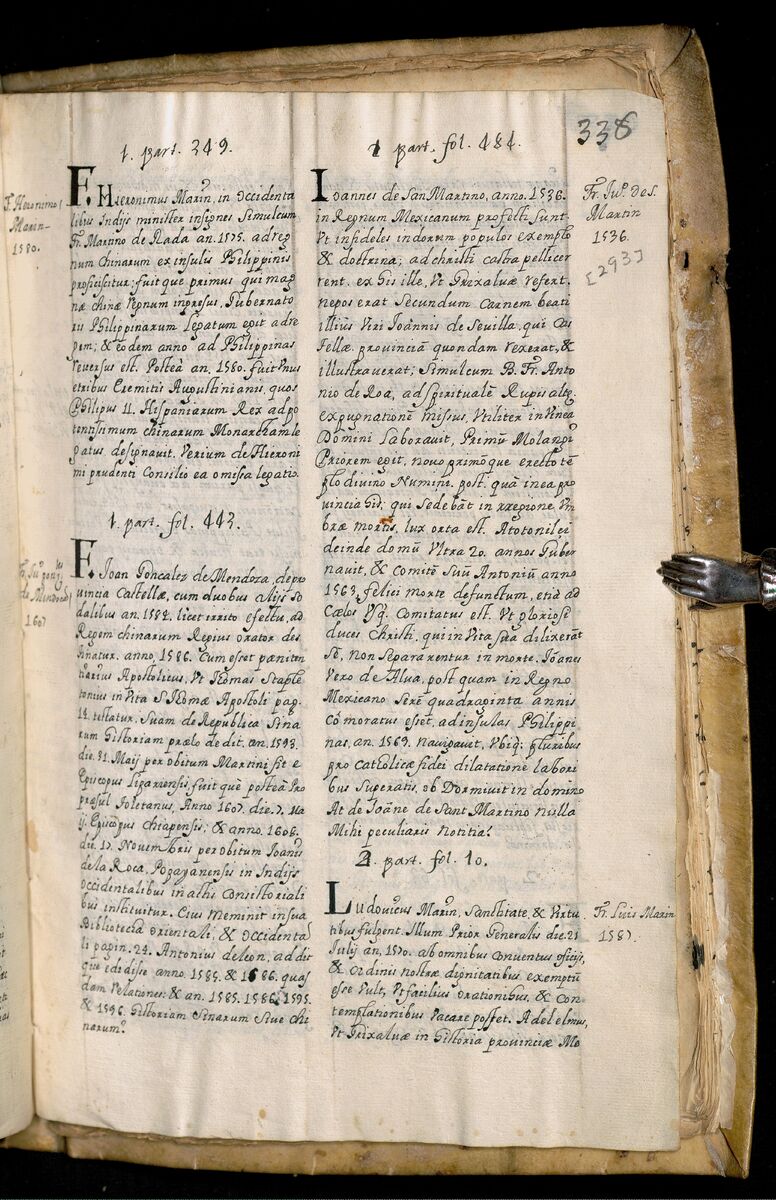 338
1. part. 349.
F. Heronimo
Marin
1580.
F. Hieronimus Marin, in occidenta
libus Indijs minister insignes simulcum
Fr. Martino de Rada an. 1575. ad reg
num chinarum ex insulis Philippinis
proficiscitur; fuit que primus qui mag
næ chinæ regnum inpresus, Gubernato
ris Philippinarum legatum egit ad re
gem; & eodem anno ad Philippinas
reversus est. Posteà an. 1580. fuit vnus
etribus Eremitis Augustinianis, quos
Philipus 11. Hispaniarum Rex ad po
tentissimum chinarum Monarcham le
gatus designavit. Verium de Hieroni
mi prudenti Consilio ea omissa legatio.
1. part. fol. 443.
de Mendoça
1607
F. Ioan Goncalez de Mendoza, de pro
vincia Castellæ, cum duobus alijs so
dalibus an. 1584. licet irrito efectu, ad
Regem chinarum Regius orator des
tinatur. anno, 1586. Cum esset pæniten
tiarius Apostolicus, Vt Thomas Staple
tonius in vita S Thomæ Apostoli pag.
14. testatur. Suam de Republica Sina
rum historiam prælo dedit. an. 1593.
die. 31. Maij per obitum Martini fit e
Episcopus Ligariensis, fuit què posteà Pro
præsul Toletanus, Anno 1607. die. 7. Ma
ij. Episcopus chiapensis; & anno. 1608.
die. 17. Novembris per obitum Ioanis
de la Roca, Popayanensis in Indijs
occidentalibus in althi Consistoriali
bus instituitur. Eius meminit in sua
Bibliotecà orientali, & occidenta
li pagin. 24. Antonius de leon, addit
què edidisse anno. 1585. & 1586. quas
dam relationes: & an. 1585. 1586. 1595.
& 1596. historiam Sinarum Sive chi
narum.
1 part. fol. 484.
Fr. Juº. de S.
Martin
1536.
[293]
Ioannes de San Martino, anno. 1536.
in Regnum Mexicanum profecti sunt
Vt infideles indorum populos exemplo
& doctrina; ad christi castra pellicer
rent. ex his ille, Vt Grixaluæ refert.
nepos erat Secundum carnem beati
illius Viri Ioannis de Sevilla, qui Cas
tellæ provinciã quondam rexerat, &
illustraverat; Simulcum B. Fr. Anto
nio de Roa, ad spiritualẽ Rupis altę.
expugnationẽ missus, Vtiliter in vinea
Domini Laboravit, Primũ Molangi
Priorem egit, novo primòque erecto tẽ
plo divino Numini. post. quà in ea pro
vincia his; qui sedebãt in rregione Vm
bræ mortis, lux orta est. Atotonilci
deinde domũ Vltra 20. annos Guber
navit, & Comitẽ Suũ Antoniũ anno
1563, felici morte defunctum, etiã ad
Cælos Vsq. Comitatus est. Vt gloriosi
duces Christi, qui in vita Sua dilixerãt
sẽ, non separarentur in morte. Ioanes
Vero de Alua, post quam in Regno
Mexicano ferẽ quadraginta annis
cõmoratus esset, ad insulas Philippi
nas, an. 1569. navigavit, Vbiq; pluribus
pro catholicæ fidei dilatatione labori
bus Superatis, ob Dormiuit in domino
At de Ioãne de Sant Martino nulla
Mihi peculiaris notitia.
2. part. fol. 10.
Fr. Luis Marin
1587.
Ludovicus Marin, Sanctitate, & Virtu
tibus fulgent. Illum Prior Generalis die. 21
Julij an, 1570. ab omnibus Conventus oficijs,
& Ordinis nostræ dignitatibus exemptũ
esse Vult, Vt facilius orationibus, & con
templationibus Vacare posset. Adelelmus,
Vt Grixaluæ in historia provinciæ Me